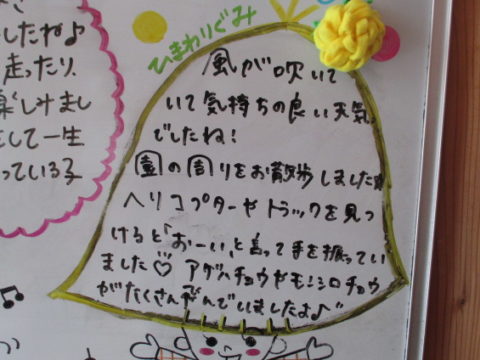 ひまわりぐみ
風が吹いて
いて気持ちの良い天気
でしたね!
園の周りをお散歩しました
ヘリコプターやトラックを見つ
けると「おーい」と言って手を振ってい
ました♡ アゲハチョウやモンシロチョウ
がたくさん飛んでいましたよ♪
したね♪
走ったり、
楽しみまし
して一生
っている子
か